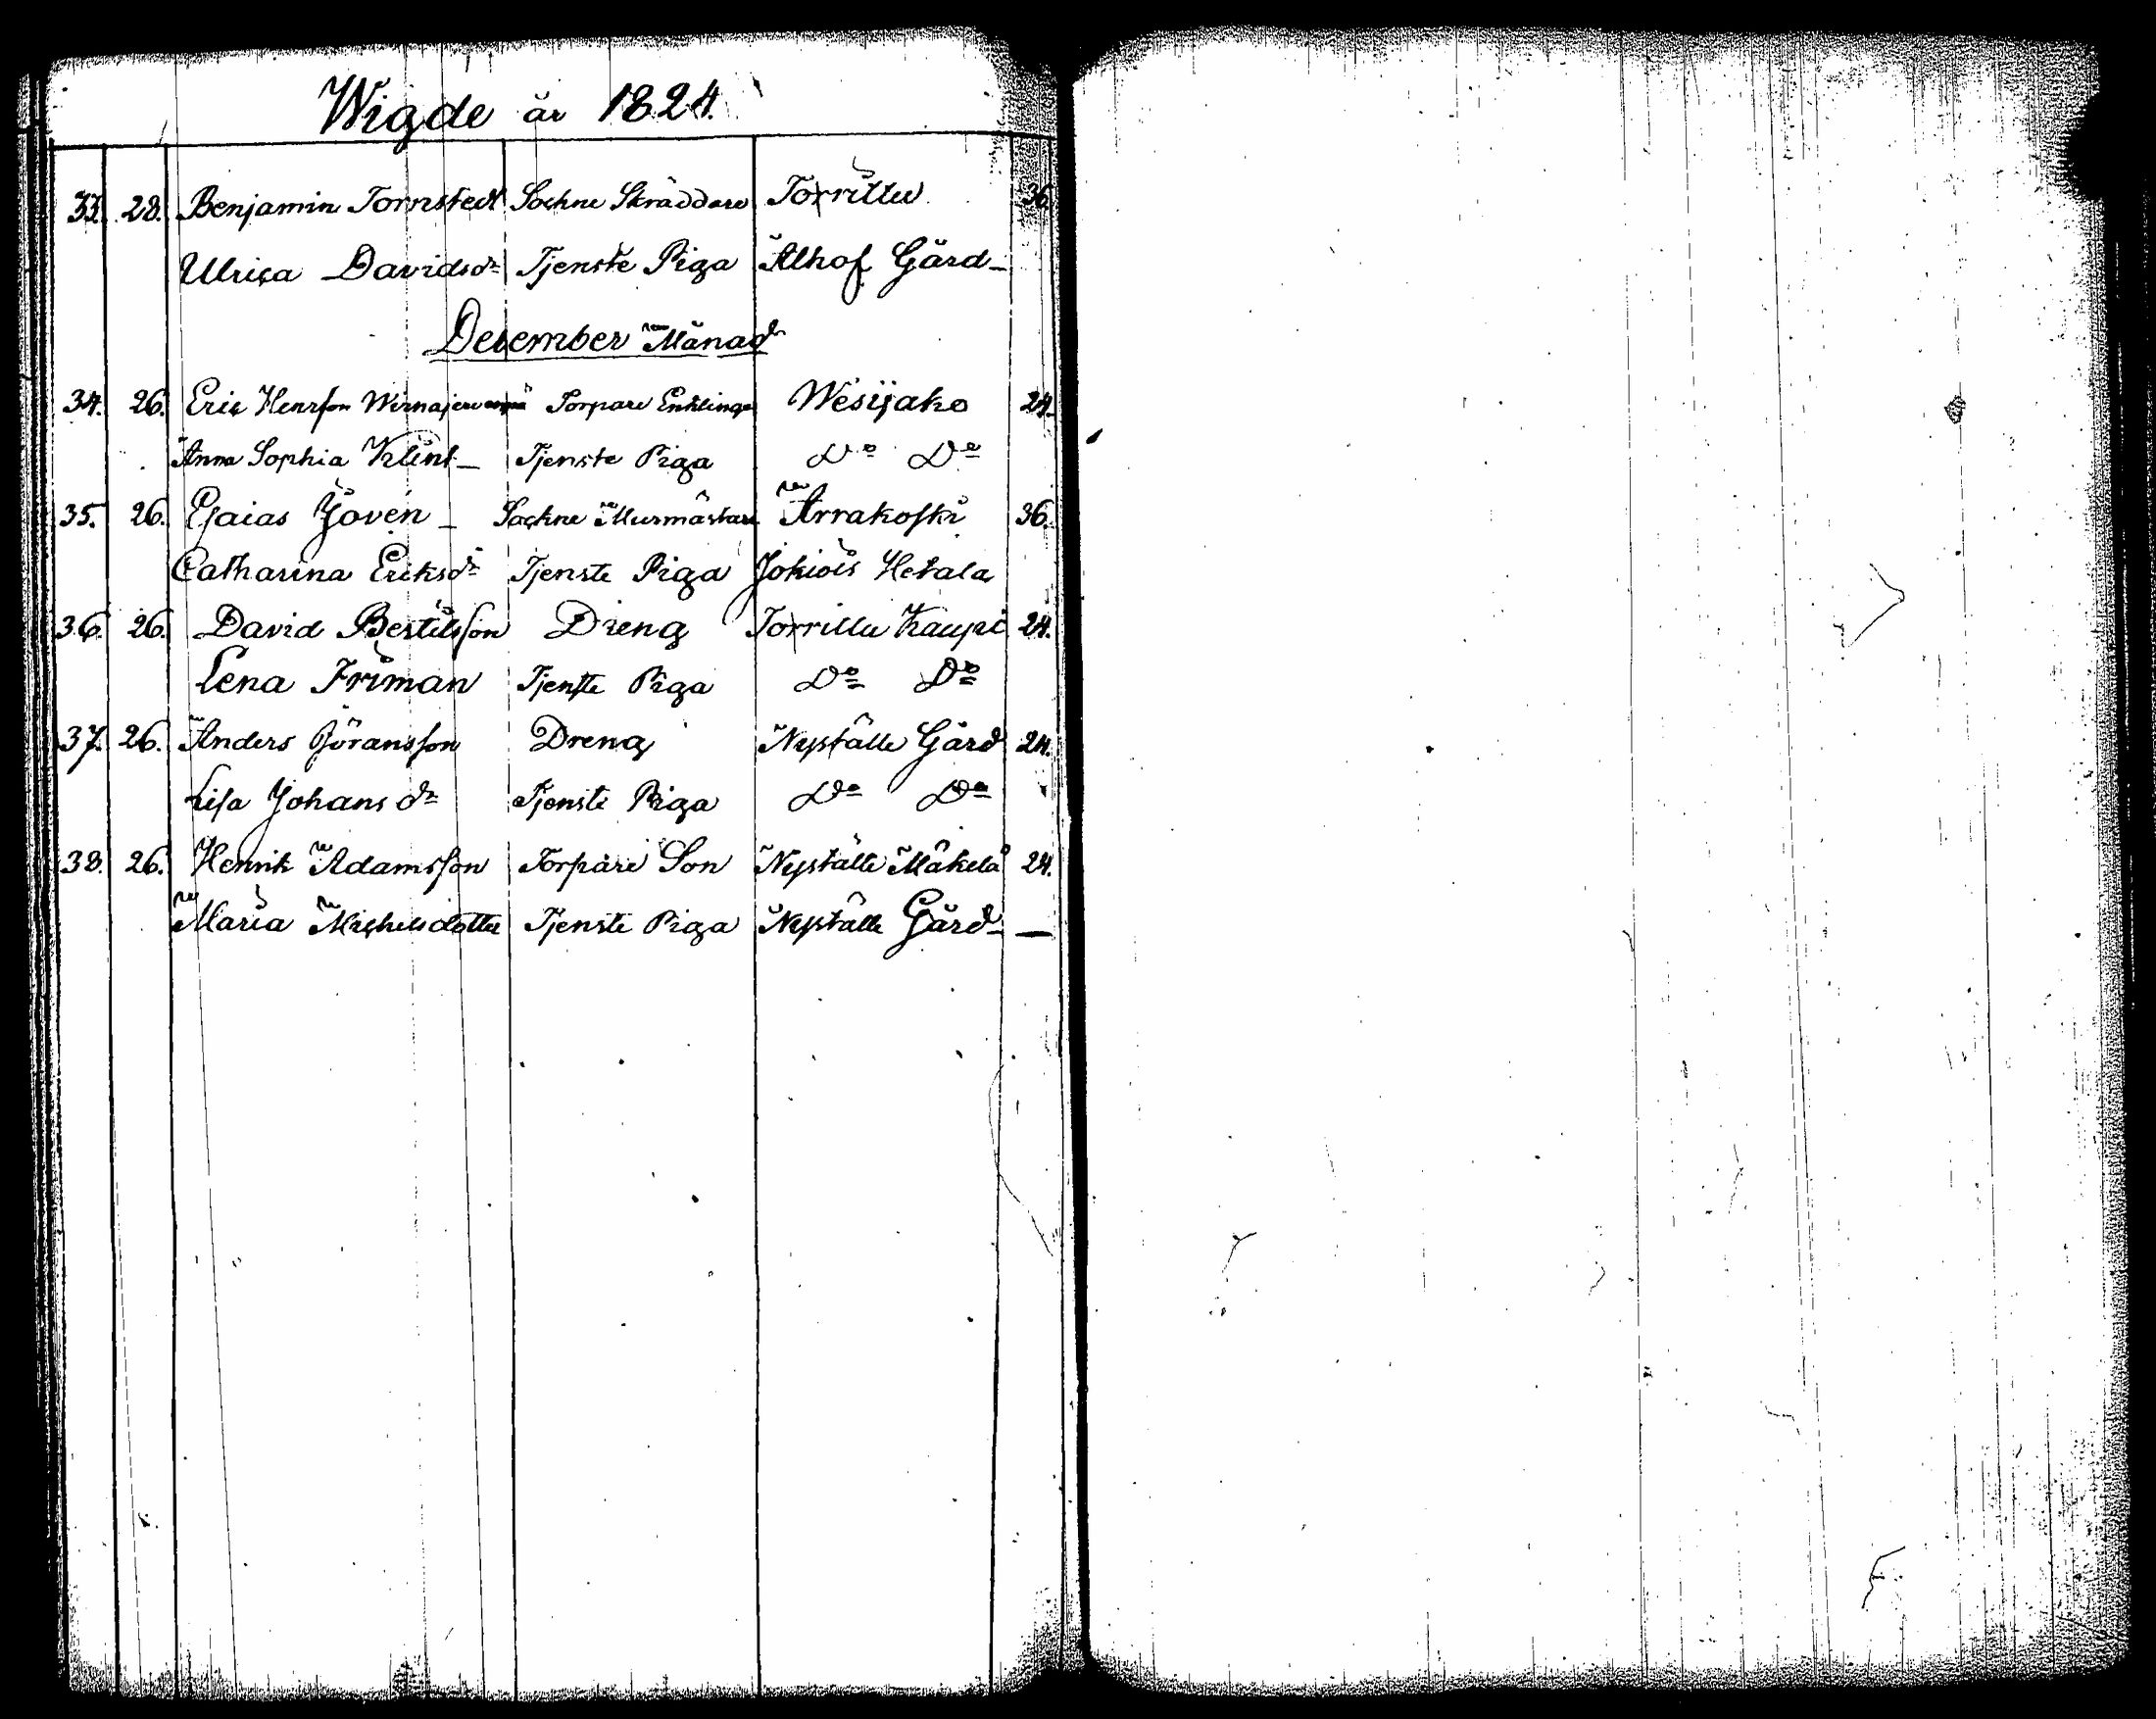 Wigde år 1824.
33. 28. Benjamin Tornstedt Sockne Skräddare Torrittu 36.
Ulrica Davidsdr Tjenste Piga Alhof Gård
December Månad
34. 26. Eric Henrsson Torpare Enklinge Wesijako 24.
Anna Sophia Klint Tjenste Piga Do Do
35. 26. Esaias Joven Sockne Murmästare Arrakoski 36.
Catharina Eriksdr Tjenste Piga Jokiois Hetala
36. 26. David Bertilsson Dreng Torrittu Kaupi 24.
Lena Friman Tjenste Piga Do Do
37. 26. Anders Göransson Dreng Nyställe Gård 24.
Lisa Johansdr Tjenste Piga Do Do
38. 26. Henrik Adamsson Torpare Son Nyställe Mäkelä 24.
Maria Michelsdotter Tjenste Piga Nyställe Gård